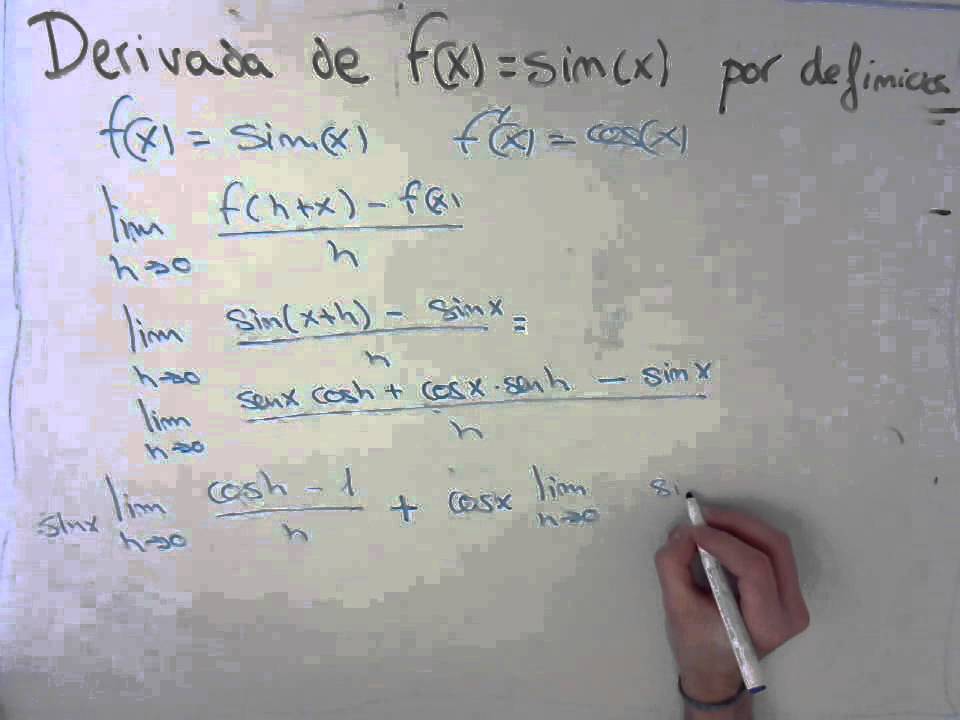 Derivada de f(x) = sin(x) por definición
f(x) = sin(x) f'(x) = cos(x)
lim h→0 f(h+x) - f(x) / h
lim h→0 sin(x+h) - sin x / h =
lim h→0 senx cosh + cosx · senh - sin x / h
sinx lim h→0 cosh - 1 / h + cosx lim h→0 si